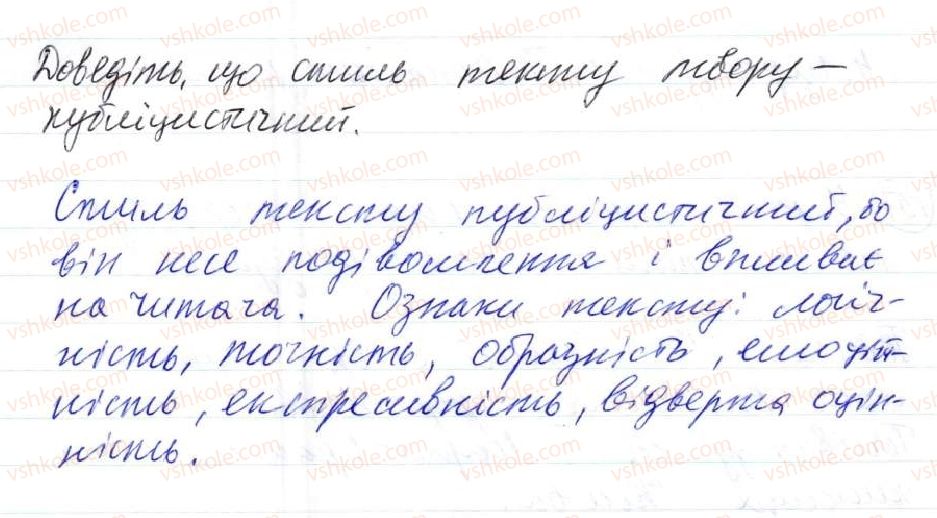 Доведіть, що стиль тексту твору –
публіцистичний.
Стиль тексту публіцистичний, бо
він несе подівомлення і впливає
на читача. Ознаки тексту: логіч-
ність, точність, образність, емоцій-
ність, експресивність, відверта оцін-
ність.